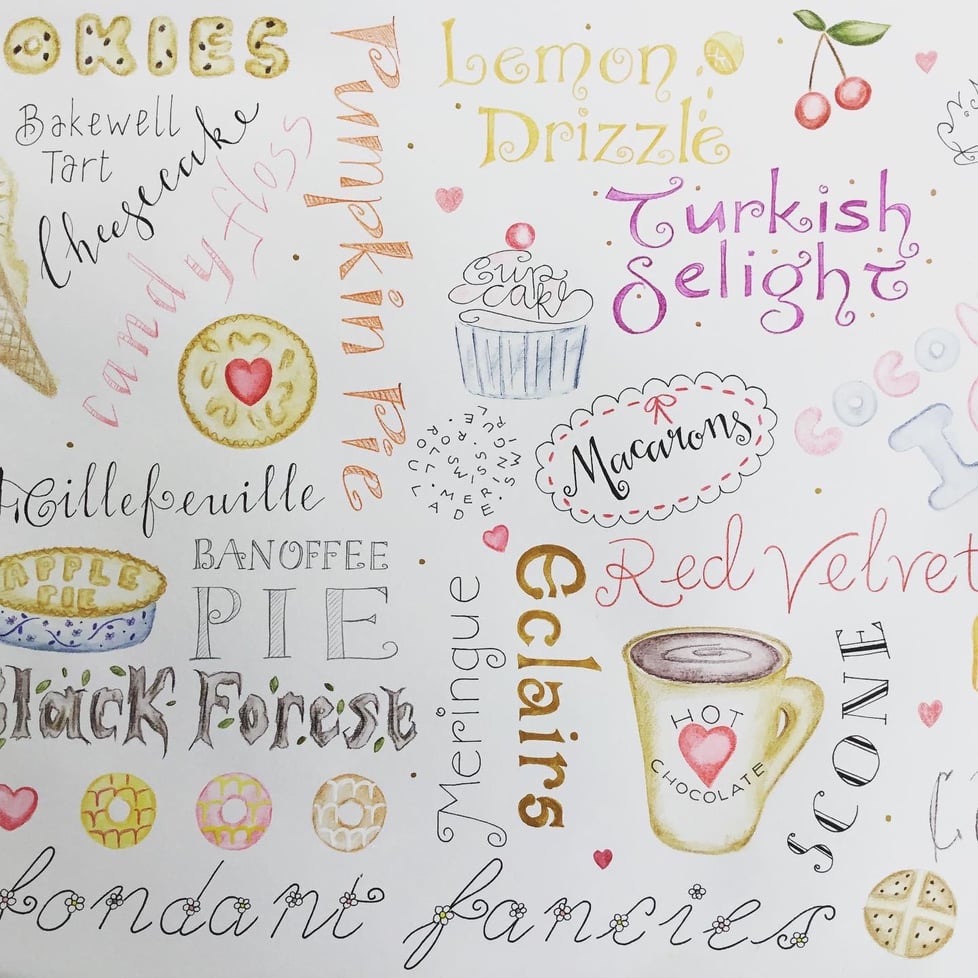 OKIES
Bakewell
Tart
Cheesecake
candy floss
Pumpkin Pie
Lemon
Drizzle
Turkish
Delight
Cup
cake
Macarons
COCO
Millefeuille
APPLE
PIE
BANOFFEE
PIE
Black Forest
Meringue
Eclairs
Red Velvet
HOT
CHOCOLATE
SCONE
fondant fancies